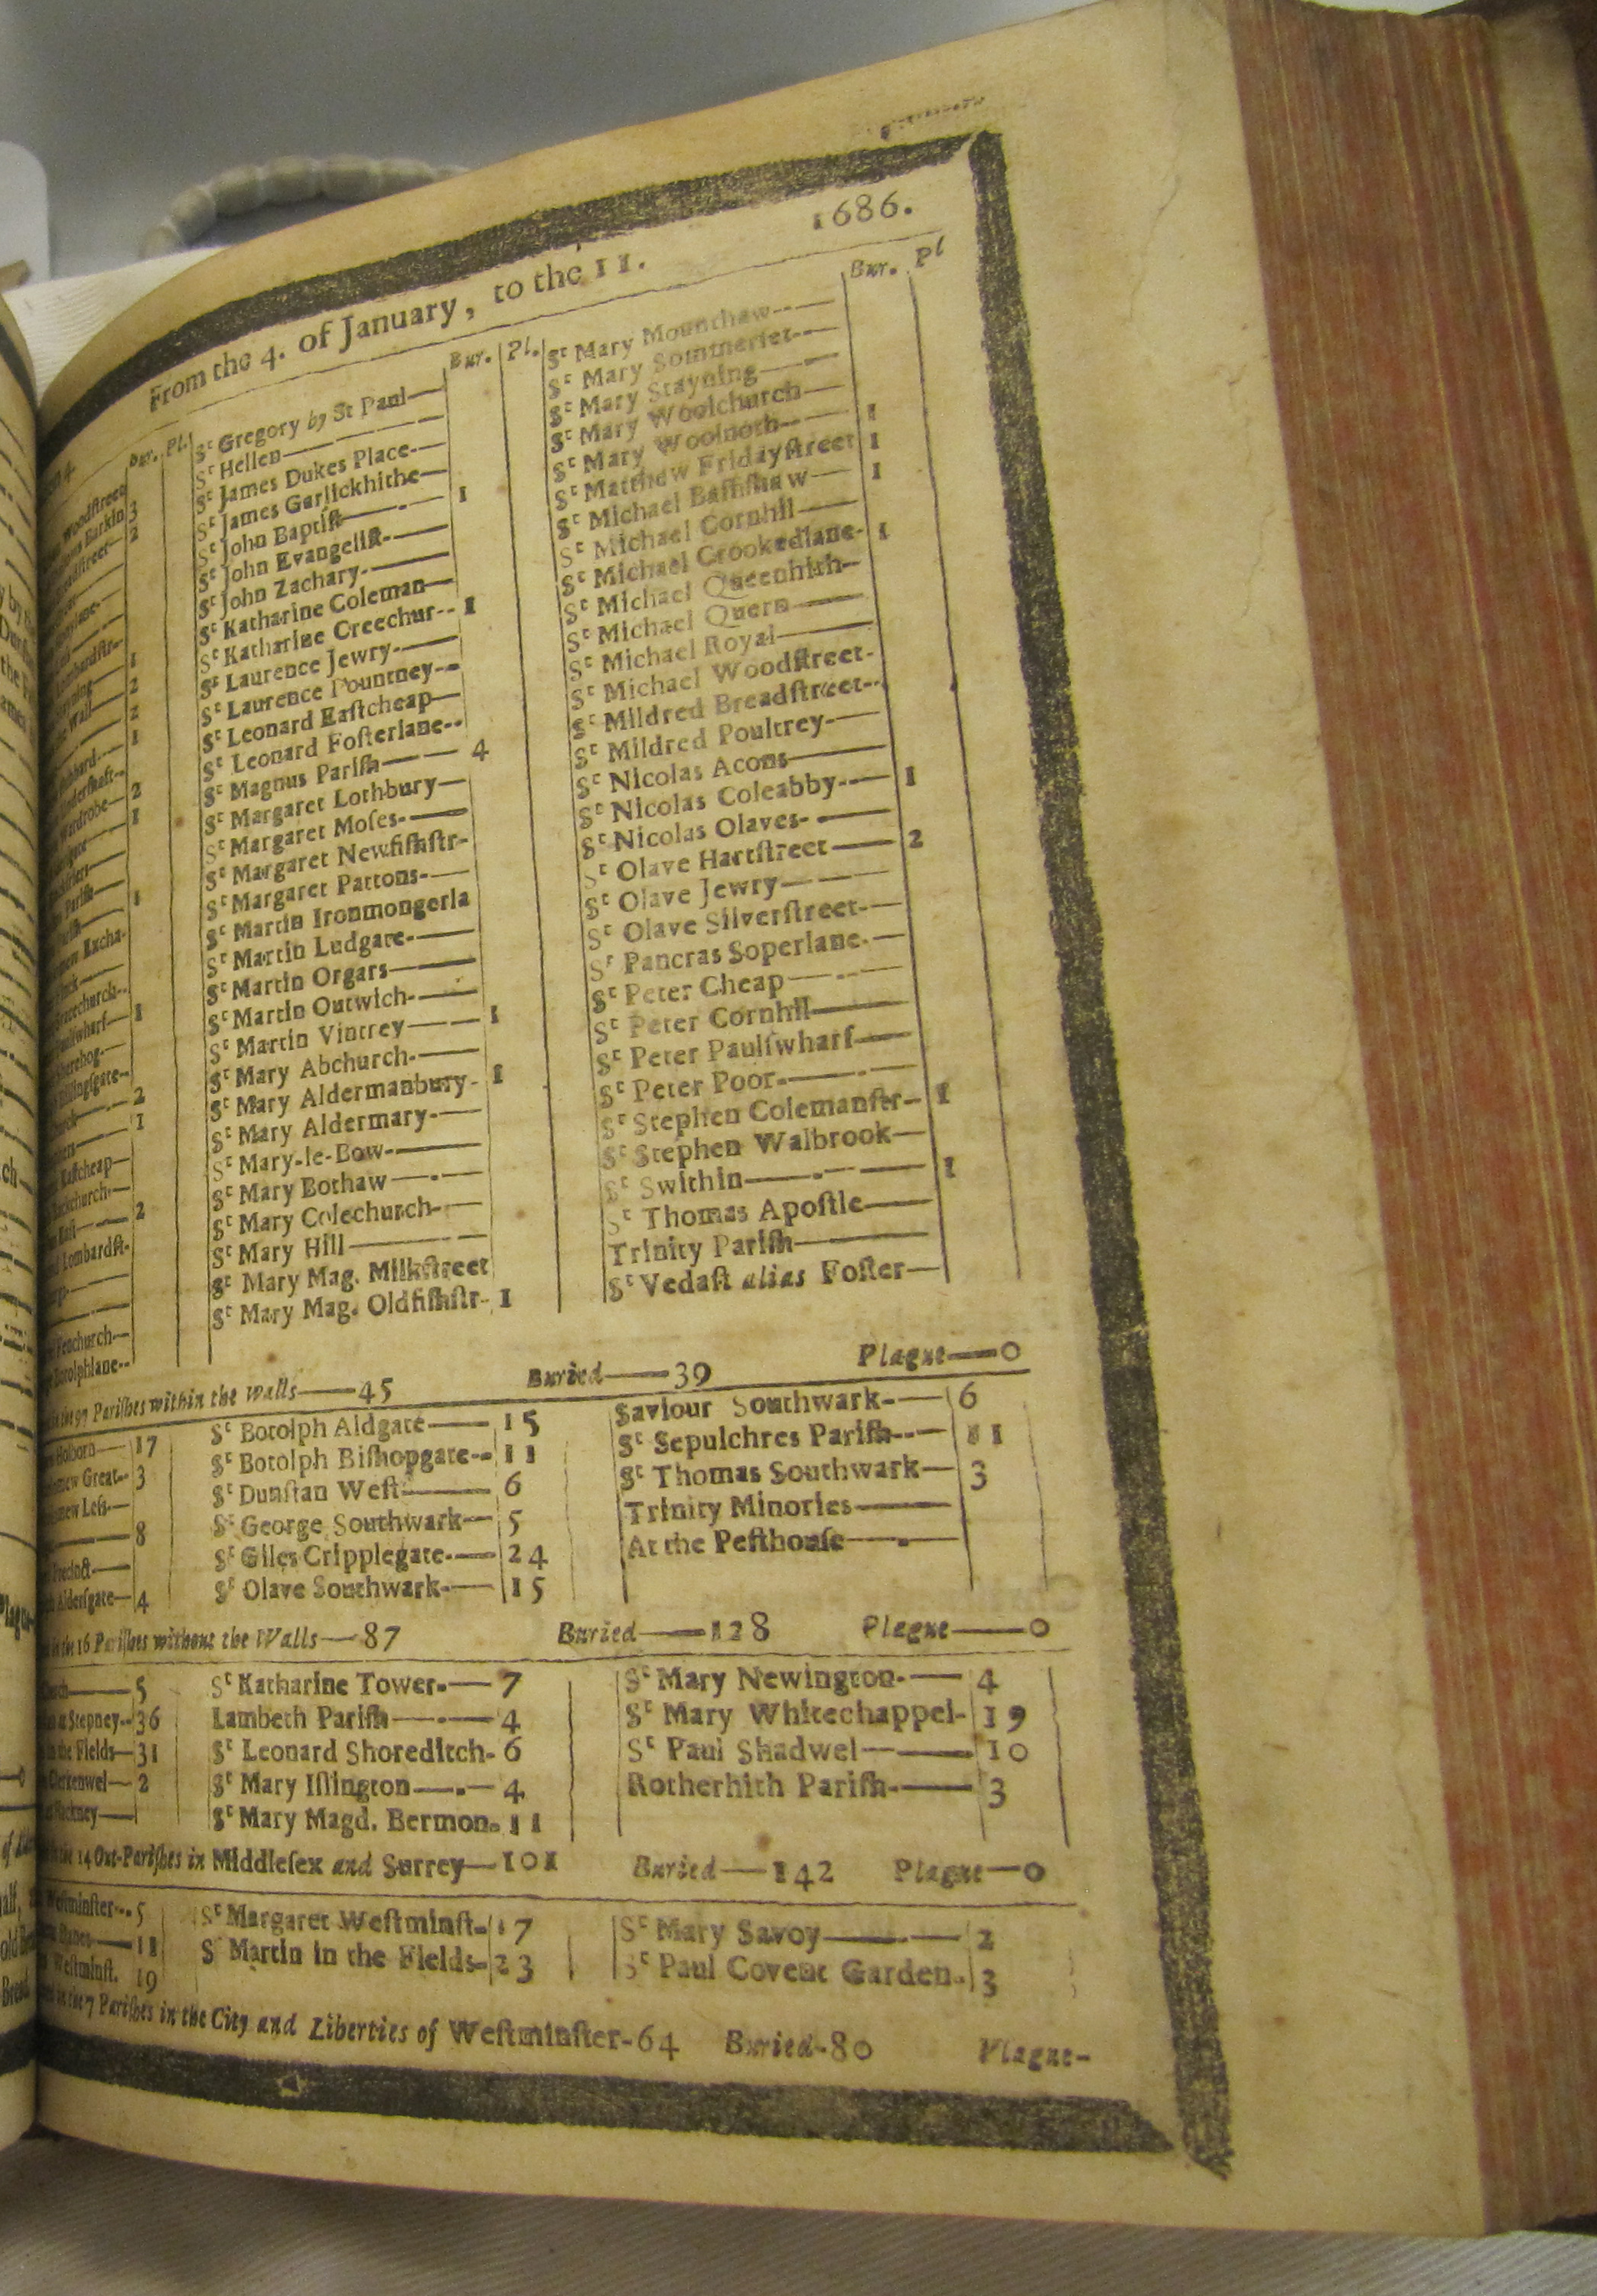 From the 4. of January, to the 11. 1686.
Bur. Pl. Bur. Pl. Bur. Pl
Woodstreet
Barkin 3
2
1
Wall 2
2
1
Wardrobe 2
1
1
1
Billingsgate
2
1
Eastcheap
2
Lombardst.
Fenchurch
Botolphlane
Sᵗ Gregory by St Paul
Sᵗ Hellen
Sᵗ James Dukes Place
Sᵗ James Garlickhithe
Sᵗ John Baptiſt 1
Sᵗ John Evangeliſt
Sᵗ John Zachary
Sᵗ Katharine Coleman
Sᵗ Katharine Creechur 1
Sᵗ Laurence Jewry
Sᵗ Laurence Pountney
Sᵗ Leonard Eaſtcheap
Sᵗ Leonard Foſterlane
Sᵗ Magnus Pariſh 4
Sᵗ Margaret Lothbury
Sᵗ Margaret Moſes
Sᵗ Margaret Newfiſhſtr
Sᵗ Margaret Pattons
Sᵗ Martin Ironmongerla
Sᵗ Martin Ludgate
Sᵗ Martin Orgars
Sᵗ Martin Outwich
Sᵗ Martin Vintrey 1
Sᵗ Mary Abchurch
Sᵗ Mary Aldermanbury 1
Sᵗ Mary Aldermary
Sᵗ Mary-le-Bow
Sᵗ Mary Bothaw
Sᵗ Mary Colechurch
Sᵗ Mary Hill
Sᵗ Mary Mag. Milkſtreet
Sᵗ Mary Mag. Oldfiſhſtr 1
Sᵗ Mary Mounthaw
Sᵗ Mary Sommerſet
Sᵗ Mary Stayning
Sᵗ Mary Woolchurch
Sᵗ Mary Woolnoth 1
Sᵗ Matthew Fridayſtreet 1
Sᵗ Michael Baſſiſhaw 1
Sᵗ Michael Cornhil
Sᵗ Michael Crookedlane 1
Sᵗ Michael Queenhith
Sᵗ Michael Quern
Sᵗ Michael Royal
Sᵗ Michael Woodſtreet
Sᵗ Mildred Breadſtreet
Sᵗ Mildred Poultrey
Sᵗ Nicolas Acons
Sᵗ Nicolas Coleabby 1
Sᵗ Nicolas Olaves
Sᵗ Olave Hartſtreet 2
Sᵗ Olave Jewry
Sᵗ Olave Silverſtreet
Sᵗ Pancras Soperlane
Sᵗ Peter Cheap
Sᵗ Peter Cornhil
Sᵗ Peter Paulſwharf
Sᵗ Peter Poor
Sᵗ Stephen Colemanſtr 1
Sᵗ Stephen Walbrook
Sᵗ Swithin 1
Sᵗ Thomas Apoſtle
Trinity Pariſh
Sᵗ Vedaſt alias Foſter
97 Pariſhes within the Walls—45 Buried—39 Plague—0
Holborn 17
Great 3
8
Precinct
Alderſgate 4
Sᵗ Botolph Aldgate 15
Sᵗ Botolph Biſhopgate 11
Sᵗ Dunſtan Weſt 6
Sᵗ George Southwark 5
Sᵗ Giles Cripplegate 24
Sᵗ Olave Southwark 15
Saviour Southwark 6
Sᵗ Sepulchres Pariſh 11
Sᵗ Thomas Southwark 3
Trinity Minories
At the Peſthouſe
in the 16 Pariſhes without the Walls—87 Buried—128 Plague—0
5
Stepney 36
in the Fields 31
Clerkenwel 2
Hackney
Sᵗ Katharine Tower 7
Lambeth Pariſh 4
Sᵗ Leonard Shoreditch 6
Sᵗ Mary Iſlington 4
Sᵗ Mary Magd. Bermon. 11
Sᵗ Mary Newington 4
Sᵗ Mary Whitechappel 19
Sᵗ Paul Shadwel 10
Rotherhith Pariſh 3
the 14 Out-Pariſhes in Middleſex and Surrey—101 Buried—142 Plague—0
Weſtminſter 5
Danes 11
Weſtminſt. 19
Sᵗ Margaret Weſtminſt 17
Sᵗ Martin in the Fields 23
Sᵗ Mary Savoy 2
Sᵗ Paul Covent Garden 3
in the 7 Pariſhes in the City and Liberties of Weſtminſter-64 Buried-80 Plague-